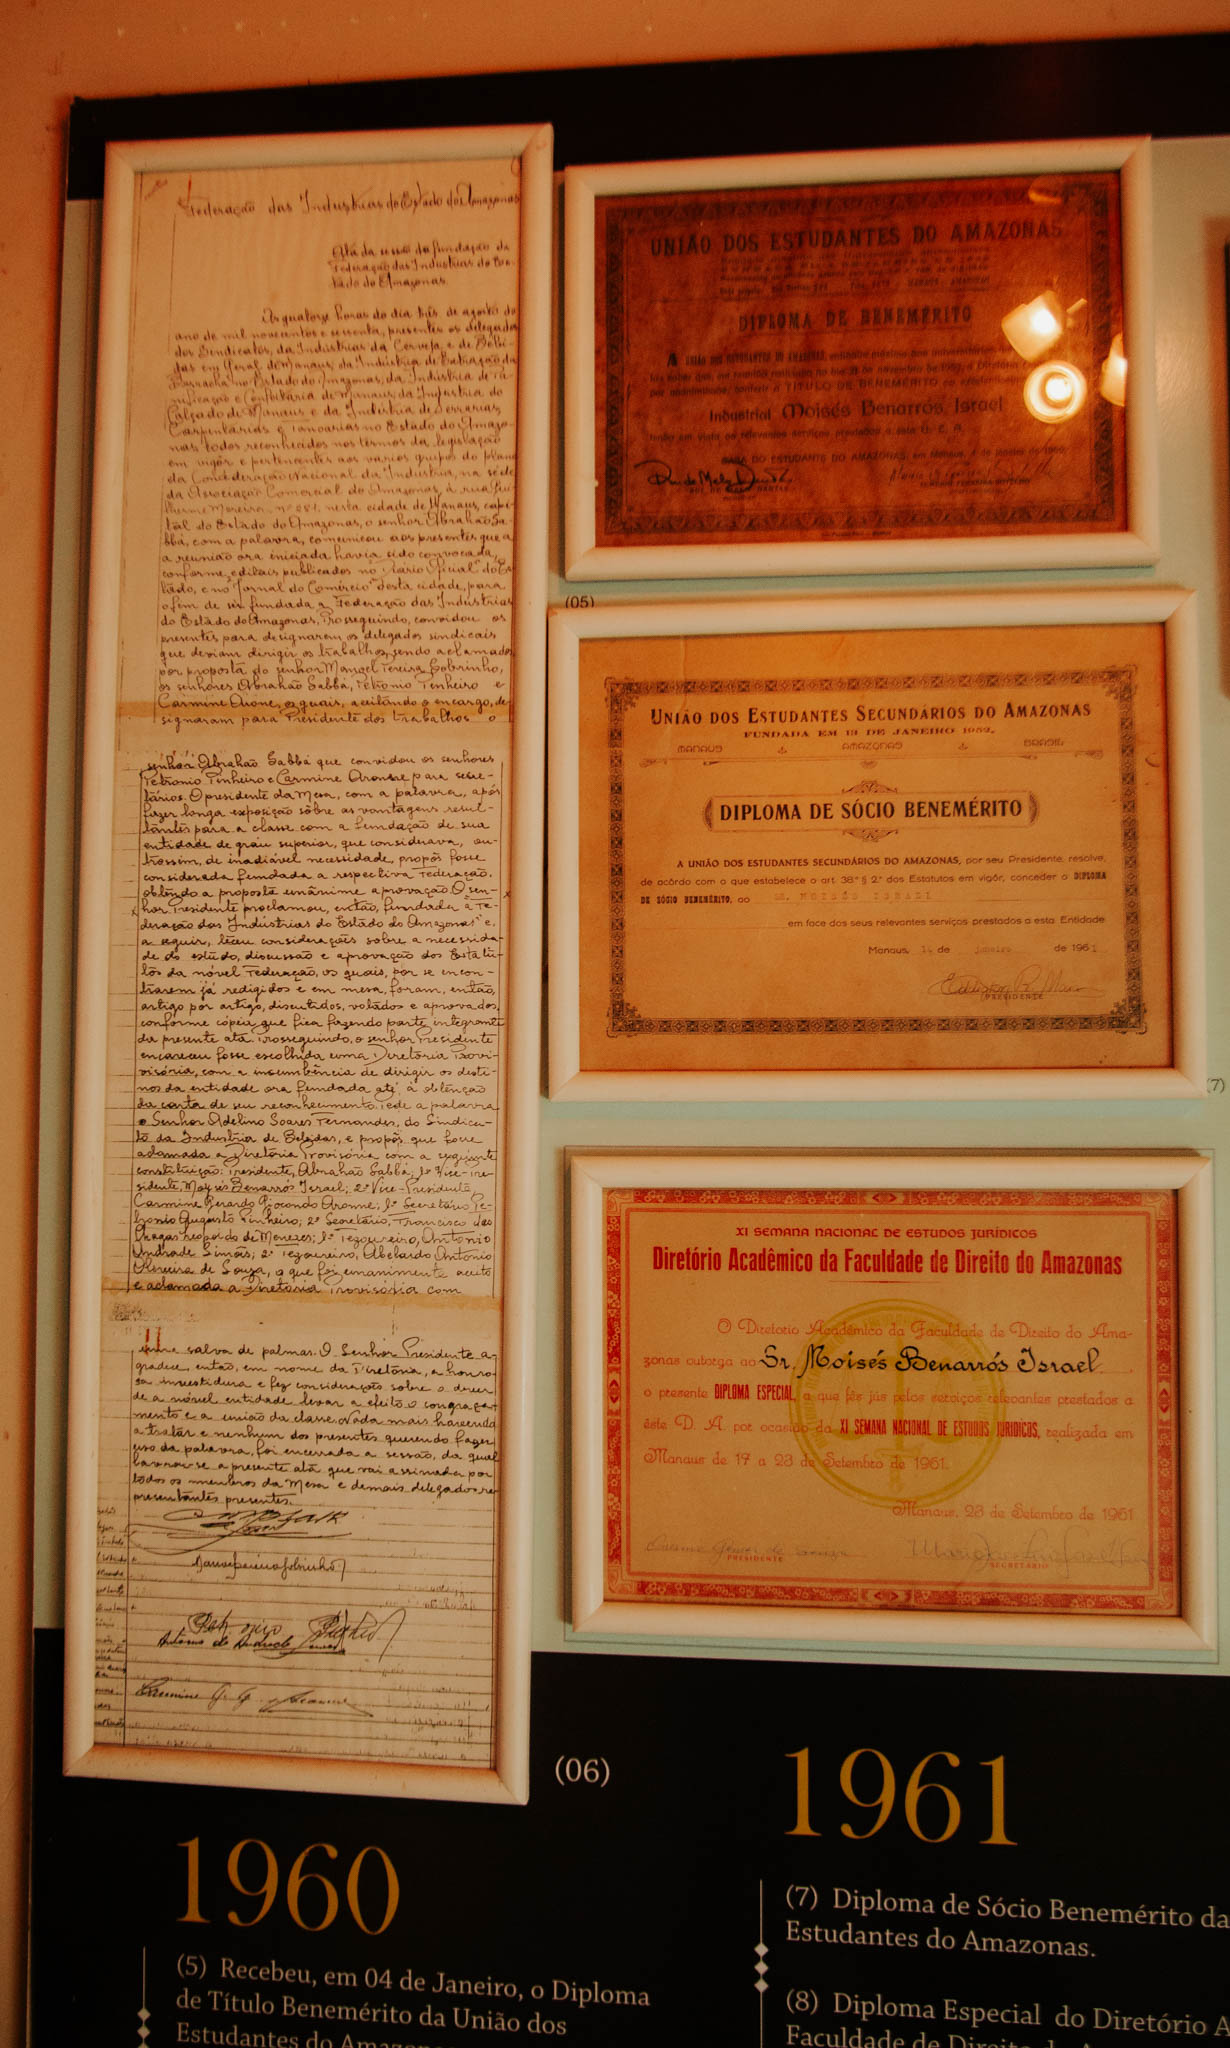 Federação das Indústrias do Estado do Amazonas
Ata da sessão da fundação da
Federação das Indústrias do Es-
tado do Amazonas.
Às quatorze horas do dia três de agosto do
ano de mil novecentos e sessenta, presentes os delegados
dos Sindicatos, da Indústrias da Cerveja e de Bebi-
das em Geral de Manaus, da Indústria de Extração da
Borracha no Estado do Amazonas, da Indústria de Pa-
nificação e Confeitaria de Manaus, da Indústria do
Calçado de Manaus e da Indústria de Serrarias,
Carpintarias e Tanoarias no Estado do Amazo-
nas, todos reconhecidos nos termos da legislação
em vigôr e pertencentes aos varios grupos do plano
da Confederação Nacional da Indústria, na séde
da Associação Comercial do Amazonas, à rua Gui-
lherme Moreira, nº 281, nesta cidade de Manaus, capi-
tal do Estado do Amazonas, o senhor Abrahão Sa-
bbá, com a palavra, comunicou aos presentes que a
a reunião ora iniciada havia sido convocada,
conforme editais publicados no "Diário Oficial" do Es-
tado, e no "Jornal do Comércio" desta cidade, para
o fim de ser fundada a Federação das Indústrias
do Estado do Amazonas. Prosseguindo, convidou os
presentes para designarem os delegados sindicais
que deviam dirigir os trabalhos, sendo aclamados
por proposta do senhor Manoel Pereira Sobrinho,
os senhores Abrahão Sabbá, Petrônio Pinheiro e
Carmine Arone, os quais, aceitando o encargo, de-
signaram para Presidente dos trabalhos o
senhôr Abrahão Sabbá que convidou os senhores
Petrônio Pinheiro e Carmine Aronne para secre-
tários. O presidente da Mesa, com a palavra, após
fazer longa exposição sôbre as vantagens resul-
tantes para a classe com a fundação de sua
entidade de grau superior, que considerava, ou-
trossim, de inadiável necessidade, propôs fosse
considerada fundada a respectiva Federação,
obtendo a proposta unânime aprovação. O sen-
hor Presidente proclamou, então, fundada a "Fe-
deração das Indústrias do Estado do Amazonas" e,
a seguir, teceu considerações sobre a necessida-
de do estudo, discussão e aprovação dos Estatu-
tos da nóvel Federação, os quais, por se encon-
trarem já redigidos e em mesa, foram, então,
artigo por artigo, discutidos, votados e aprovados,
conforme cópia que fica fazendo parte integrante
da presente ata. Prosseguindo, o senhor Presidente
encareceu fosse escolhida uma Diretória Provi-
visória, com a incumbência de dirigir os desti-
nos da entidade ora fundada até à obtenção
da carta de seu reconhecimento. Pede a palavra
o Senhor Adelino Soares Fernandes, do Sindica-
to da Indústria de Bebidas, e propôs que fosse
aclamada a Diretória Provisória com a seguinte
constituição: Presidente, Abrahão Sabbá; 1º Vice-Pre-
sidente, Moysés Benarrós Israel; 2º Vice-Presidente,
Carmine Gerardo Giocondo Aronne; 1º Secretário Pe-
trônio Augusto Pinheiro; 2º Secretário, Francisco das
Chagas Leopoldo de Menezes; 1º Tezoureiro, Antonio
Andrade Simões; 2º Tezoureiro, Abelardo Antônio
Oliveira de Souza, o que foi unanimente aceito
e aclamada a Diretória Provisória com
uma salva de palmas. O Senhor Presidente a-
gradece, então, em nome da Diretória, a honro-
sa investidura e fez considerações sobre o dever
de a nóvel entidade levar a efeito o congraça-
mento e a união da classe. Nada mais havendo
a tratar e nenhum dos presentes querendo fazer
uso da palavra, foi encerrada a sessão, da qual
lavrou-se a presente ata que vai assinada por
todos os membros da Mesa e demais delegados re-
presentantes presentes.
UNIÃO DOS ESTUDANTES DO AMAZONAS
DIPLOMA DE BENEMÉRITO
A UNIÃO DOS ESTUDANTES DO AMAZONAS,
TÍTULO DE BENEMÉRITO
Industrial Moisés Benarrós Israel
CASA DO ESTUDANTE DO AMAZONAS, em Manaus, 4 de janeiro de 1960
(05)
UNIÃO DOS ESTUDANTES SECUNDÁRIOS DO AMAZONAS
FUNDADA EM 13 DE JANEIRO 1952.
MANAUS AMAZONAS BRASIL
DIPLOMA DE SÓCIO BENEMÉRITO
A UNIÃO DOS ESTUDANTES SECUNDÁRIOS DO AMAZONAS, por seu Presidente, resolve,
de acôrdo com o que estabelece o art. 38º § 2º dos Estatutos em vigôr, conceder o DIPLOMA
DE SÓCIO BENEMÉRITO, ao SR. MOISÉS ISRAEL
em face dos seus relevantes serviços prestados a esta Entidade
Manaus, 14 de janeiro de 1961
PRESIDENTE
(7)
XI SEMANA NACIONAL DE ESTUDOS JURÍDICOS
Diretório Acadêmico da Faculdade de Direito do Amazonas
O Diretorio Acadêmico da Faculdade de Direito do Ama-
zonas outorga ao Sr. Moisés Benarrós Israel
o presente DIPLOMA ESPECIAL, a que fês jús pelos serviços relevantes prestados a
êste D. A. por ocasião da XI SEMANA NACIONAL DE ESTUDOS JURIDICOS, realizada em
Manaus de 17 a 23 de Setembro de 1961.
Manaus, 23 de Setembro de 1961
PRESIDENTE SECRETÁRIO
(06)
1960
(5) Recebeu, em 04 de Janeiro, o Diploma
de Título Benemérito da União dos
Estudantes do
1961
(7) Diploma de Sócio Benemérito da
Estudantes do Amazonas.
(8) Diploma Especial do Diretório A
Faculdade de